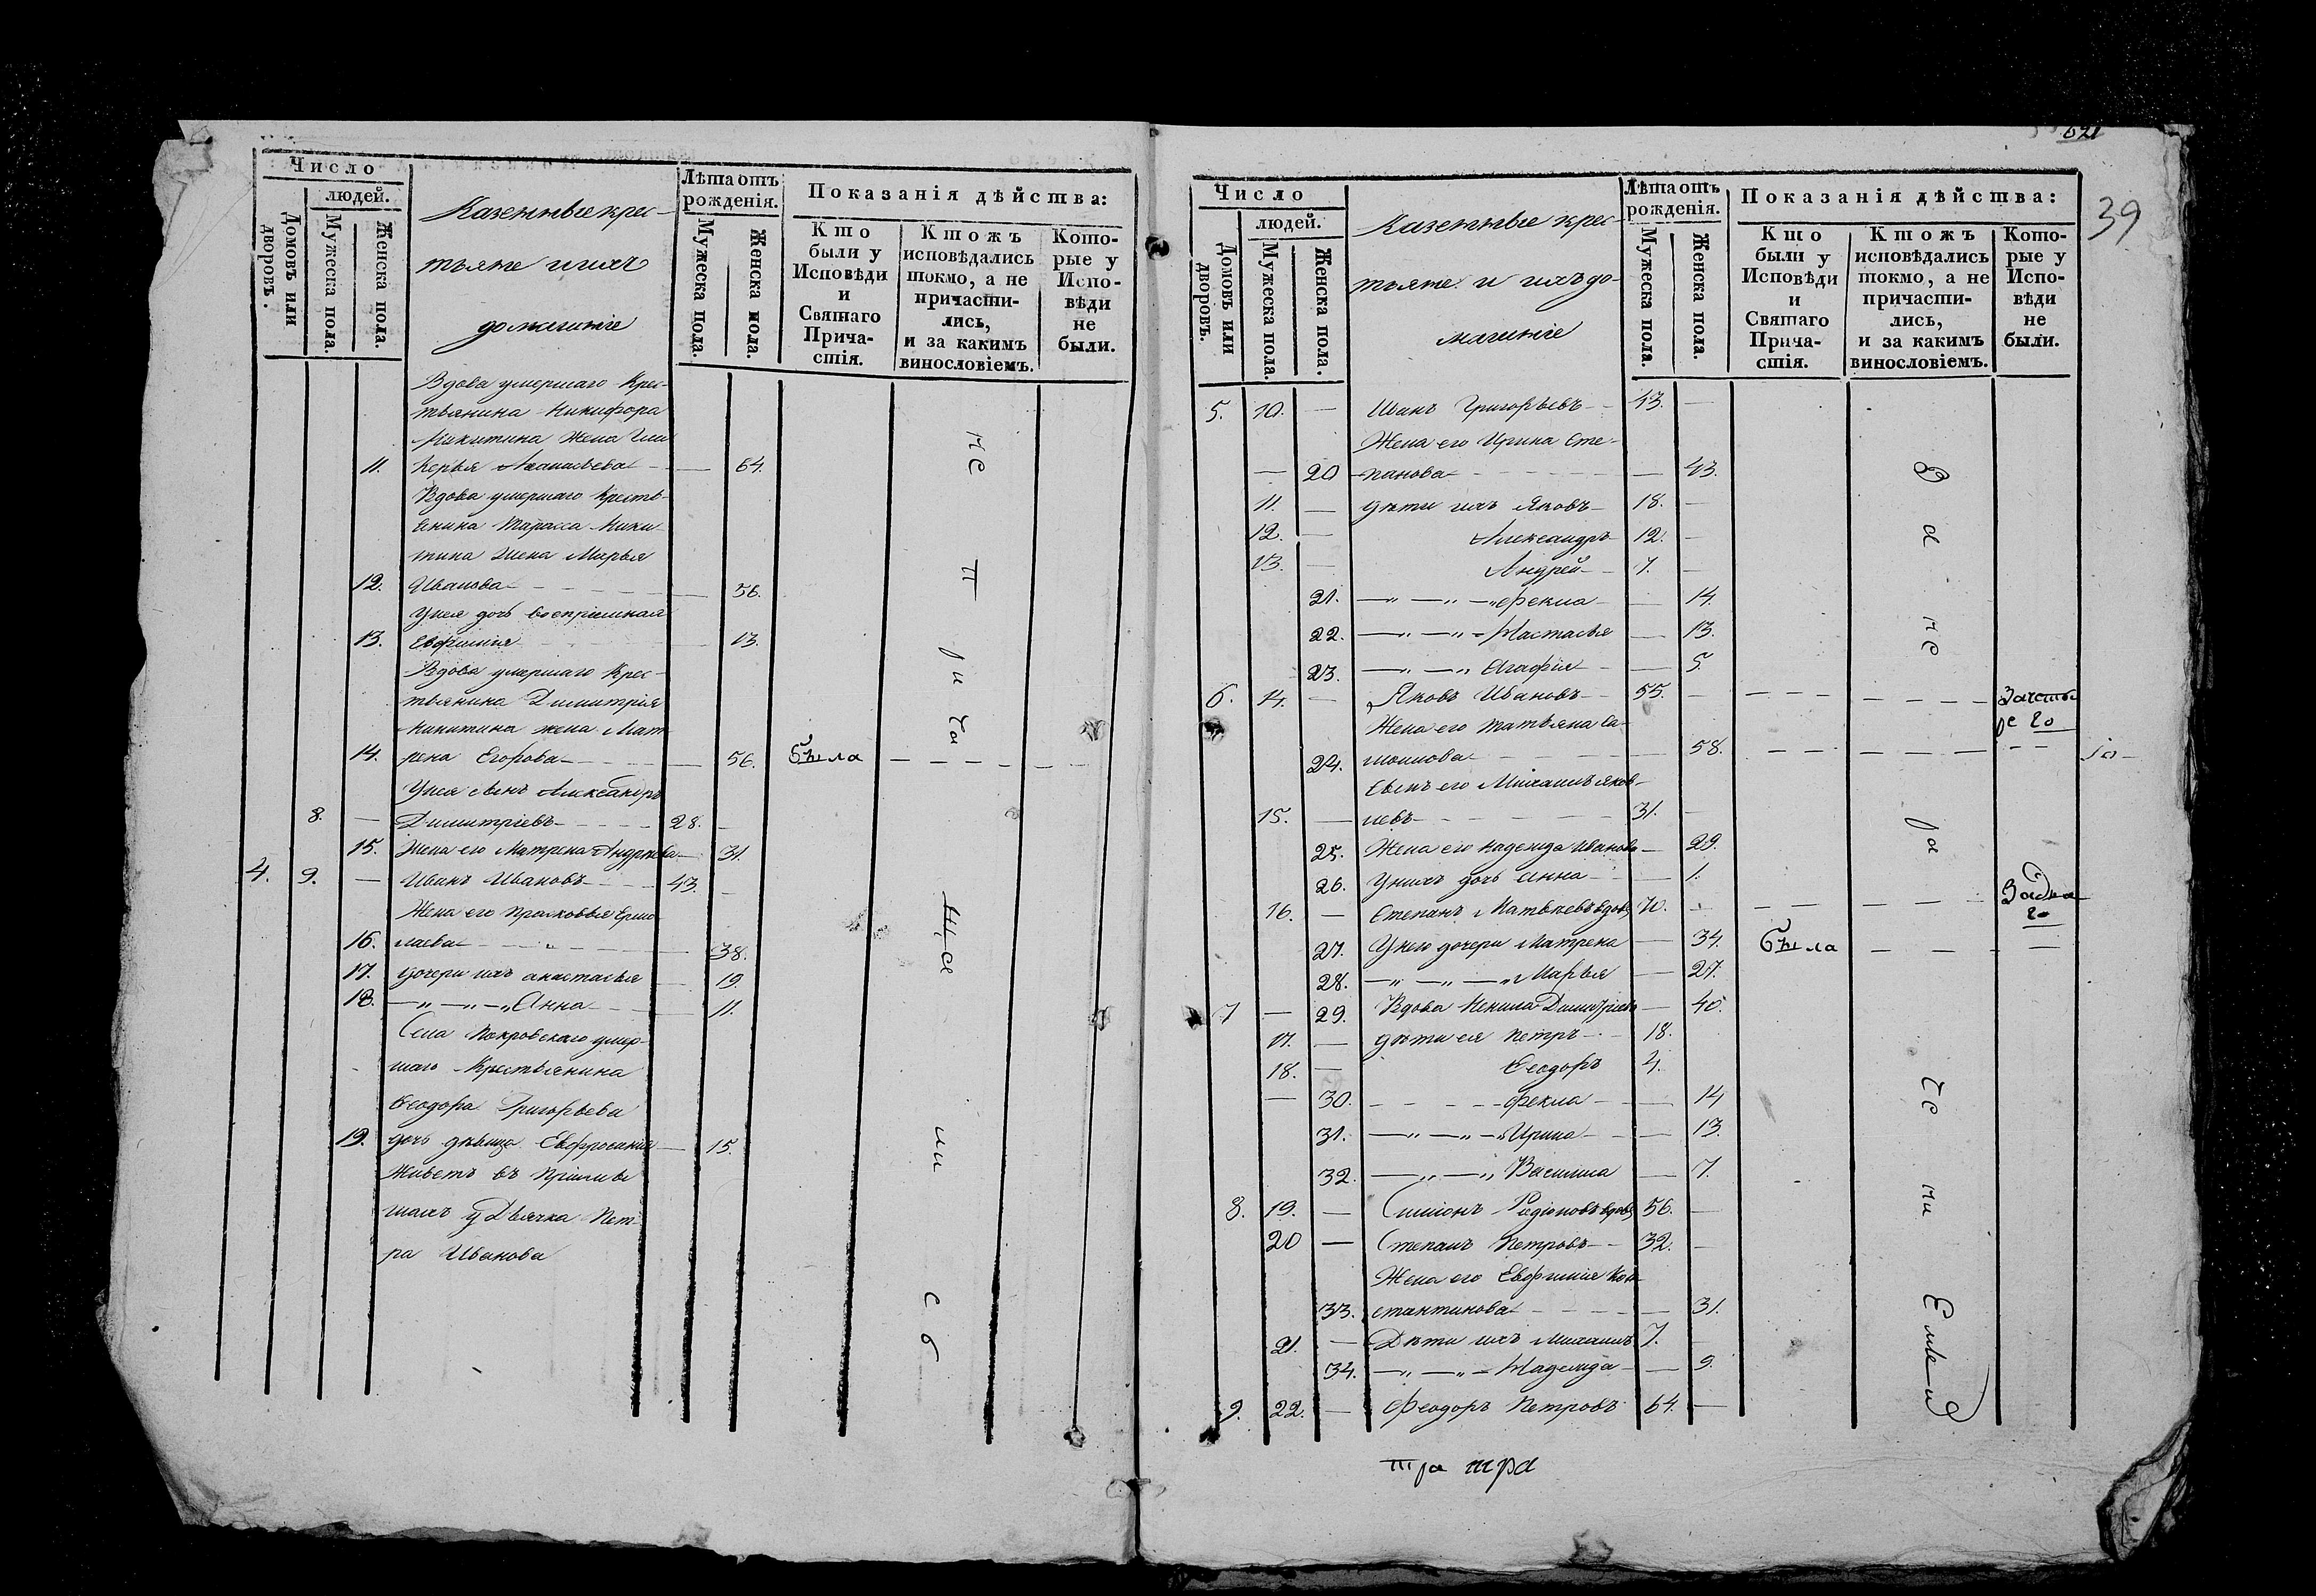 Число
людей.
Домовъ или дворовъ.
Мужеска пола.
Женска пола.
Казенные крес-
тьяне и ихъ
домашніе
Лѣта отъ рожденія.
Мужеска пола.
Женска пола.
Показанія дѣйства:
Кто были у Исповѣди и Святаго Причастія.
Ктожъ исповѣдались токмо, а не причастились, и за какимъ винословіемъ.
Которые у Исповѣди не были.
Вдова умершаго Крес-
тьянина Никифора
Никитина Жена Гли
11. керья Афанасьева — 64.
Вдова умершаго Кресть-
янина Тарасса Ники-
тина Жена Марья
12. Иванова — 56.
У нея дочь воспріимная
13. Евфимія — 13.
Вдова умершаго Крес-
тьянина Димитрія
Никитина жена Мат
14. рена Егорова — 56. была
У нея сынъ Александръ
8. — Димитріевъ 28. —
15. Жена его Матрена Андреева — 31.
4. 9. — Иванъ Ивановъ 43. —
Жена его Прасковья Ермо
16. лаева — 38.
17. Дочери ихъ Анастасья — 19.
18. Анна — 11.
Села Покровскаго умер-
шаго Крестьянина
Ѳеодора Григорьева
19. дочь дѣвица Евфросинія — 15.
Живетъ въ
у Дьячка Пет-
ра Иванова
621
39
Число
людей.
Домовъ или дворовъ.
Мужеска пола.
Женска пола.
Казенные крес-
тьяне и ихъ до-
машніе
Лѣта отъ рожденія.
Мужеска пола.
Женска пола.
Показанія дѣйства:
Кто были у Исповѣди и Святаго Причастія.
Ктожъ исповѣдались токмо, а не причастились, и за какимъ винословіемъ.
Которые у Исповѣди не были.
5. 10. — Иванъ Григорьевъ 43. —
Жена его Ирина Сте-
— 20 панова — 43.
11. — дѣти ихъ Яковъ 18. —
12. — Александръ 12. —
13. — Андрей 7. —
21. Фекла — 14.
22. Настасья — 13.
23. Агафія — 5.
6. 14. — Яковъ Ивановъ 55. —
Жена его Татьяна Са-
24. моилова — 58.
Сынъ его Михаилъ Яков-
15. — левъ 31. —
25. Жена его Надежда Иванова — 29.
26. У нихъ дочь Анна — 1.
16. — Степанъ Матвѣевъ вдовъ 70. —
27. У него дочери Матрена — 34. была
28. Марья — 27.
7 — 29. Вдова Димитріева — 40.
17. — дѣти ея Петръ 18.
18. — Ѳеодоръ 4.
— 30. Фекла — 14
31. Ирина — 13.
32. Василиса — 7.
8. 19. — Симіонъ Родіоновъ вдовъ 56. —
20 — Степанъ Петровъ 32. —
Жена его Евфимія Кон
33. стантинова — 31.
21. — Дѣти ихъ Михаилъ 7. —
34. Надежда — 9.
9. 22. — Феодоръ Петровъ 64. —